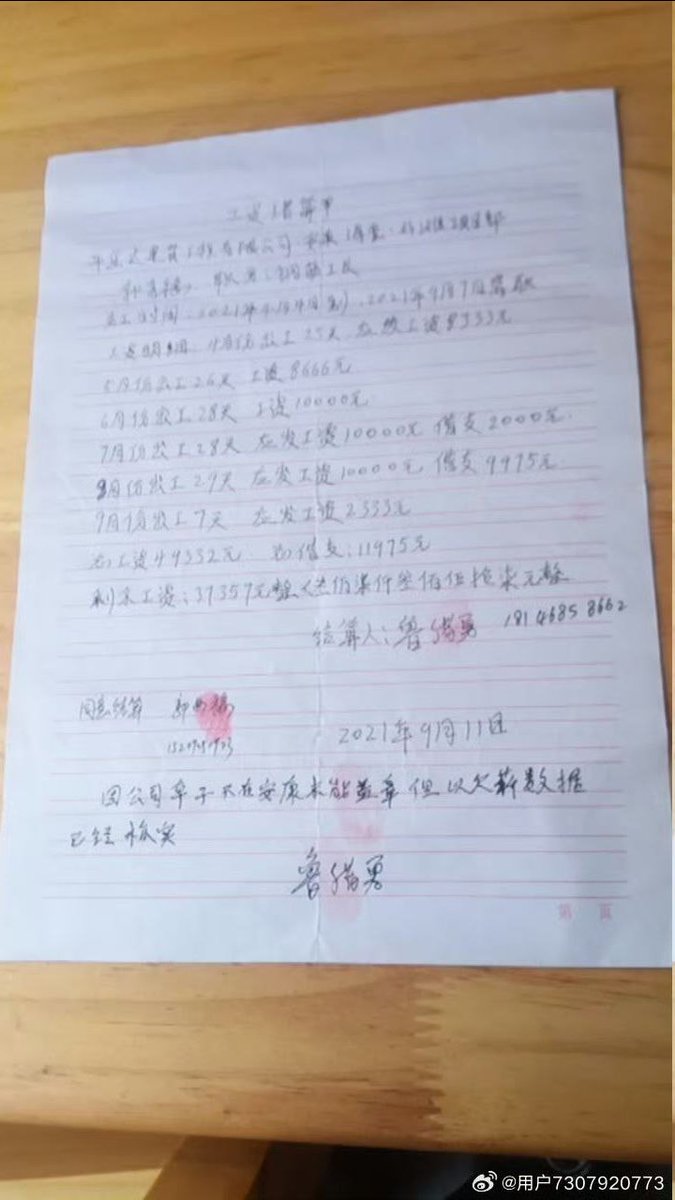 工资结算单
在工时间:2021年4月4日到 2021年9月7日离职
工资明细:4月份出工25天 应发工资8333元
5月份出工26天 工资8666元
6月份出工28天 工资10000元
7月份出工28天 应发工资10000元 借支2000元
8月份出工29天 应发工资10000元 借支9975元
9月份出工7天 应发工资2333元
总工资49332元 总借支:11975元
剩余工资:37357元整
结算人:鲁 勇 181 4685 8662
同意结算 郭
2021年9月11日
因公司章子不在安康未能盖章 但以欠薪数据
已经核实
鲁 勇
第 页
@用户7307920773